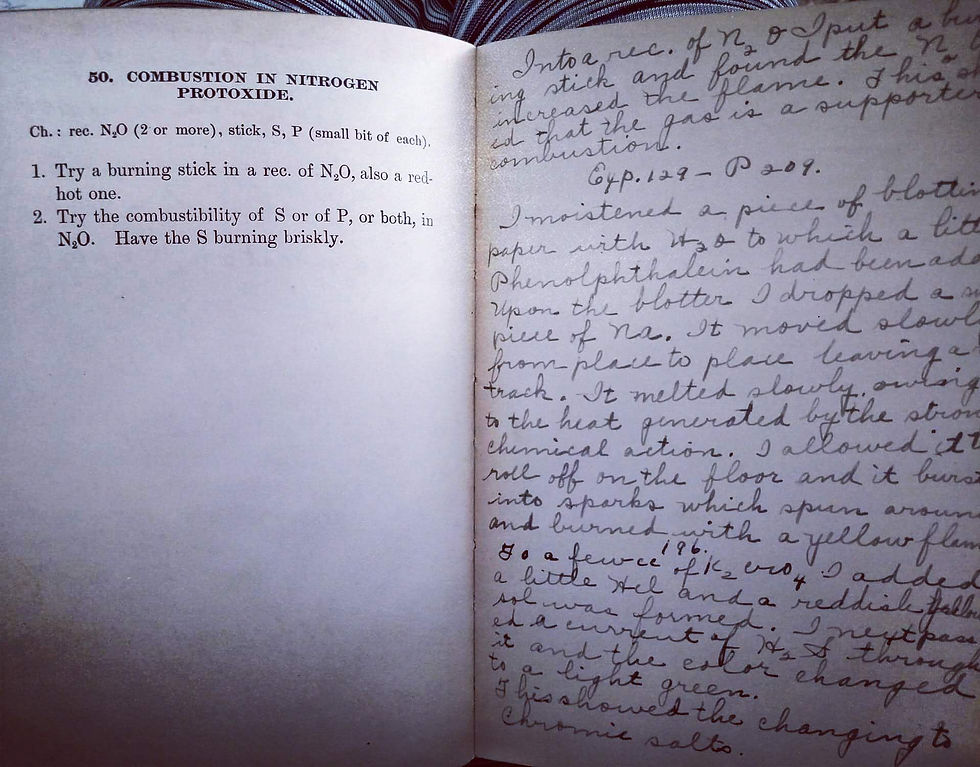 50. COMBUSTION IN NITROGEN
PROTOXIDE.
Ch.: rec. N₂O (2 or more), stick, S, P (small bit of each).
1. Try a burning stick in a rec. of N₂O, also a red-
hot one.
2. Try the combustibility of S or of P, or both, in
N₂O. Have the S burning briskly.
Into a rec. of N₂O I put a
ing stick and found the N
increased the flame. This
ed that the gas is a supporter
combustion.
Exp. 129 – P 209.
I moistened a piece of
paper with H₂O to which a
Phenolphthalein had been
Upon the blotter I dropped a
piece of Na. It moved
from place to place leaving a
track. It melted slowly, owing
to the heat generated by the
chemical action. I allowed it
roll off on the floor and it
into sparks which spun
and burned with a yellow
196.
To a few cc of K₂CrO₄ I added
a little Hcl and a reddish
sol was formed. I next
ed a current of H₂S through
it and the color changed
to a light green.
This showed the changing to
Chromic salts.